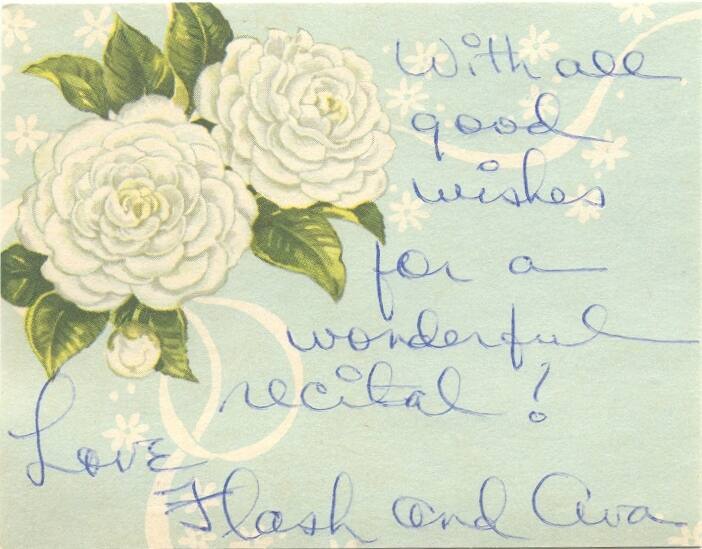 With all
good
wishes
for a
wonderful
recital!
Love
Flash and Ava